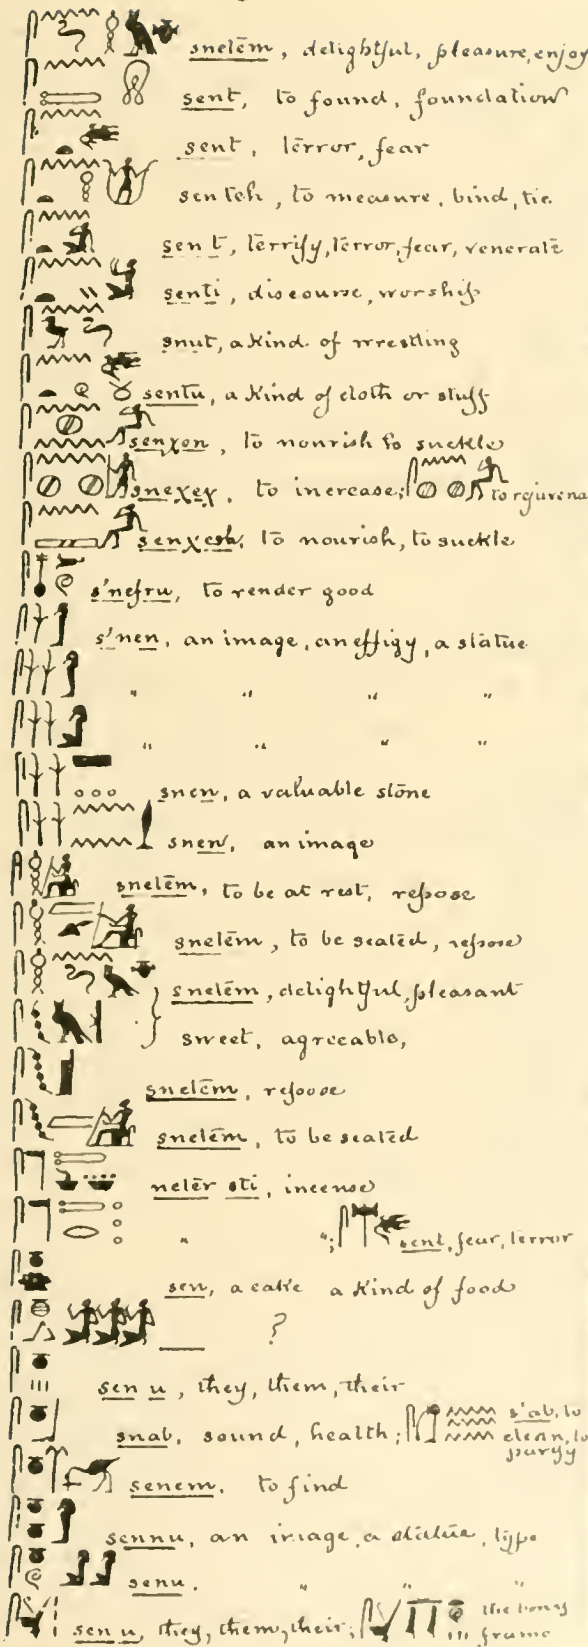 snetēm, delightful, pleasure, enjoy
sent, to found, foundation
sent, terror, fear
senteh, to measure, bind, tie
sent, terrify, terror, fear, venerate
senti, discourse, worship
snut, a kind of wrestling
sentu, a kind of cloth or stuff
senχen, to nourish to suckle
sneχeχ, to increase; to rejuvena
senχesh, to nourish, to suckle
s'nefru, to render good
s'nen, an image, an effigy, a statue
" " " "
" " " "
snen, a valuable stone
snen, an image
snetēm, to be at rest, repose
snetēm, to be seated, repose
snetēm, delightful, pleasant
sweet, agreeable,
snetēm, repose
snetēm, to be seated
netēr sti, incense
" "; sent, fear, terror
sen, a cake a kind of food
?
sen u, they, them, their
snab, sound, health; s'ab, to
clean, to
purify
senem, to find
sennu, an image, a statue, type
senu, " " "
sen u, they, them, their; the bony
frame